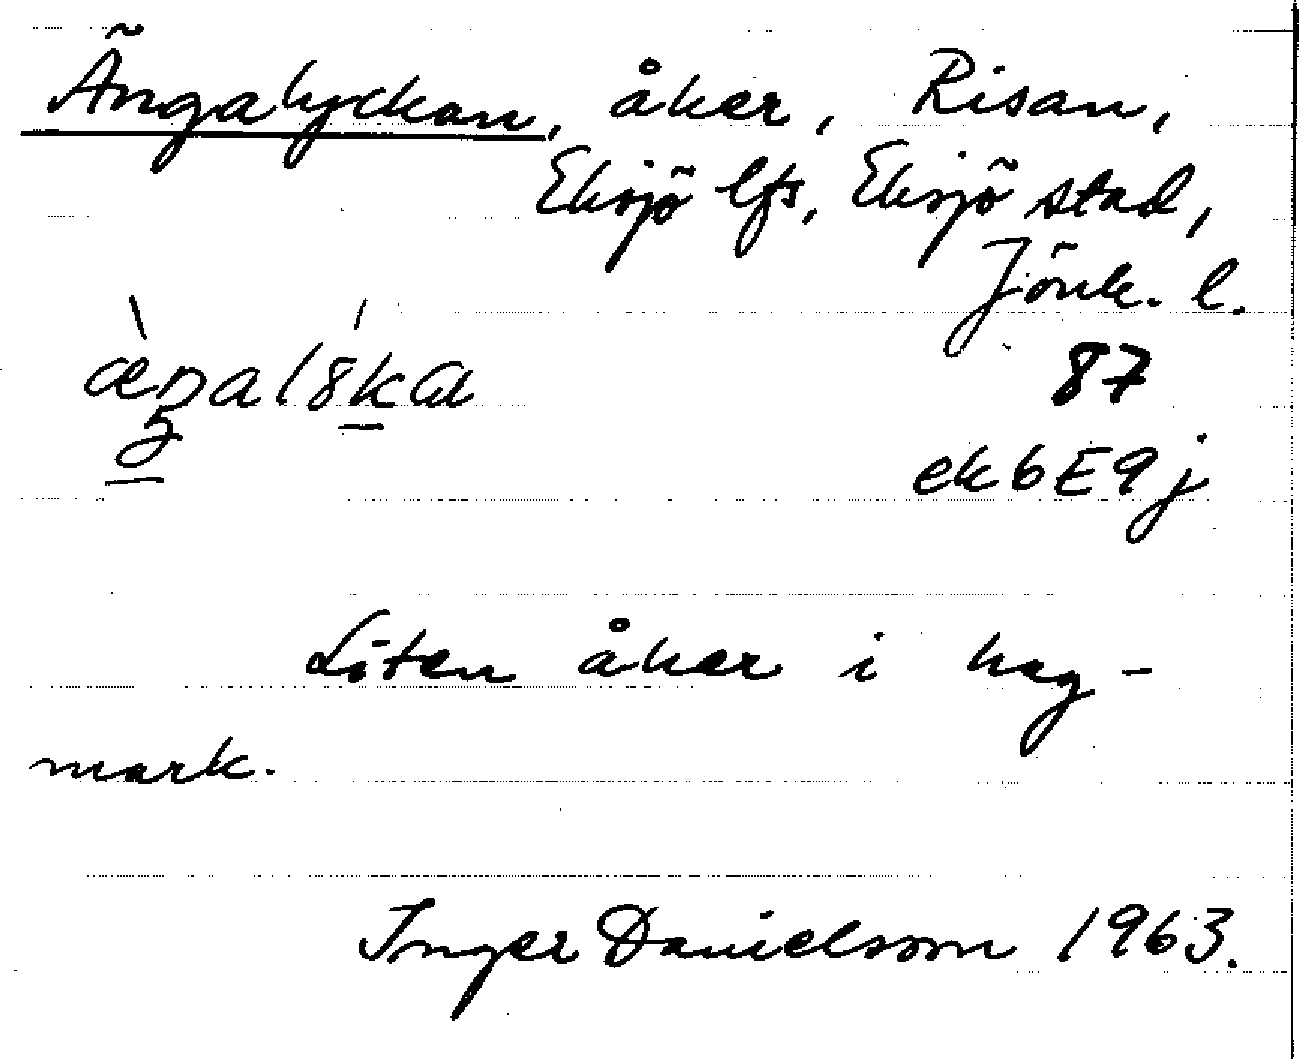 Ängalyckan, åker, Risan,
Eksjö lfs, Eksjö stad,
Jönk. l.
87
ek6E9j
Liten åker i hag-
mark.
Inger Danielsson 1963.